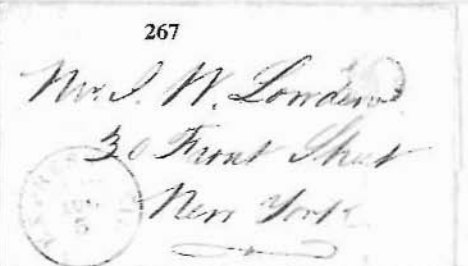 267
Mr. J. W. Lowden
30 Front Street
New York